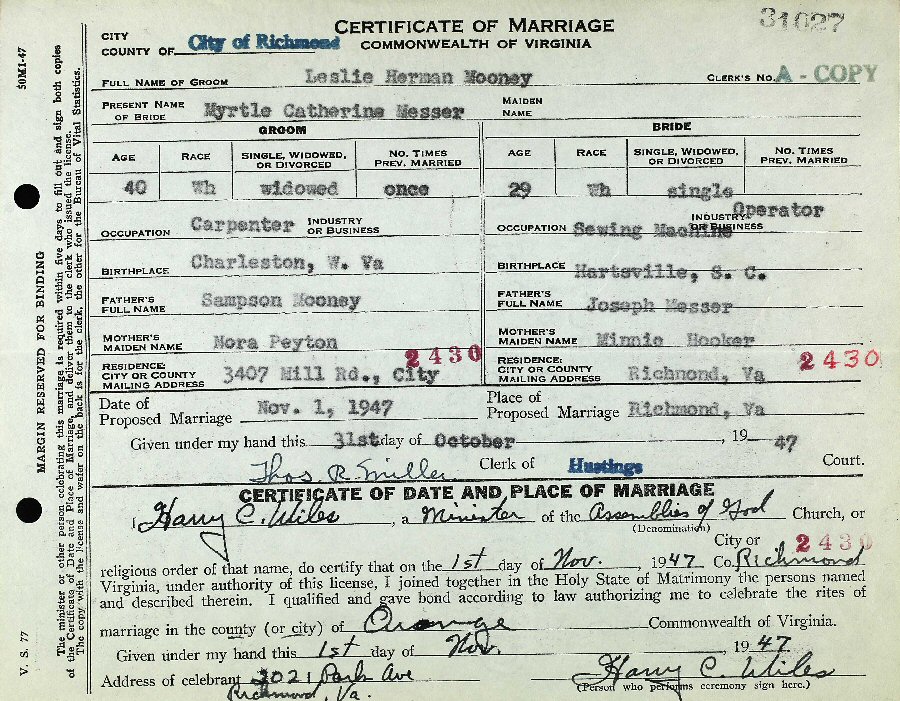 31027
CERTIFICATE OF MARRIAGE
COMMONWEALTH OF VIRGINIA
CITY
COUNTY OF City of Richmond
FULL NAME OF GROOM Leslie Herman Mooney CLERK'S No. A - COPY
PRESENT NAME OF BRIDE Myrtle Catherine Messer MAIDEN NAME
GROOM BRIDE
AGE RACE SINGLE, WIDOWED, OR DIVORCED NO. TIMES PREV. MARRIED AGE RACE SINGLE, WIDOWED, OR DIVORCED NO. TIMES PREV. MARRIED
40 Wh widowed once 29 Wh single
OCCUPATION Carpenter INDUSTRY OR BUSINESS OCCUPATION Sewing Machine INDUSTRY OR BUSINESS Operator
BIRTHPLACE Charleston, W. Va BIRTHPLACE Hartsville, S. C.
FATHER'S FULL NAME Sampson Mooney FATHER'S FULL NAME Joseph Messer
MOTHER'S MAIDEN NAME Nora Peyton MOTHER'S MAIDEN NAME Minnie Hooker
2430 2430
RESIDENCE: CITY OR COUNTY MAILING ADDRESS 3407 Mill Rd., City RESIDENCE: CITY OR COUNTY MAILING ADDRESS Richmond, Va
Date of Proposed Marriage Nov. 1, 1947 Place of Proposed Marriage Richmond, Va
Given under my hand this 31st day of October, 19 47
Thos. R. Miller Clerk of Hustings Court.
CERTIFICATE OF DATE AND PLACE OF MARRIAGE
I, Harry C. Wiles, a Minister of the Assemblies of God Church, or
(Denomination)
City or 2430
religious order of that name, do certify that on the 1st day of Nov., 1947 Co. Richmond
Virginia, under authority of this license, I joined together in the Holy State of Matrimony the persons named
and described therein. I qualified and gave bond according to law authorizing me to celebrate the rites of
marriage in the county (or city) of Orange Commonwealth of Virginia.
Given under my hand this 1st day of Nov., 1947.
Address of celebrant 2021 Park Ave Harry C. Wiles
Richmond, Va. (Person who performs ceremony sign here.)
50M1-47
MARGIN RESERVED FOR BINDING
V. S. 77
The minister or other person celebrating this marriage is required within five days to fill out and sign both copies
of the Certificate of Date and Place of Marriage, and deliver them to the clerk who issued the license.
The copy with the license and wafer on the back is for the clerk, the other for the Bureau of Vital Statistics.